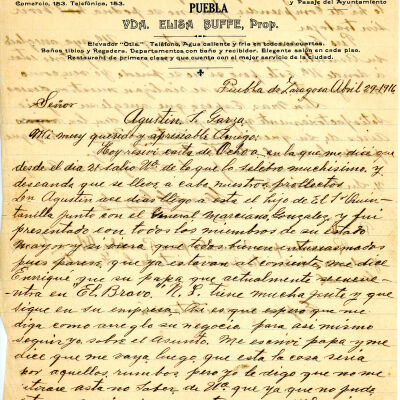 Comercio, 183. Telefónica, 183.
y Pasaje del Ayuntamiento
PUEBLA
VDA. ELISA BUFFE, Prop.
Elevador "Otis." Teléfono, Agua caliente y fria en todos los cuartos.
Baños tibios y Regadera. Departamentos con baño y recibidor. Elegante salón en cada piso.
Restaurant de primera clase y que cuenta con el mejor servicio de la ciudad.
Puebla de Zaragoza Abril 29-1916
Señor
Agustin S. Garza.
Mi muy querido y apreciable Amigo:
Hoy resivi carta de Ochoa en la que me dice que
desde el dia 21 salio Ud. de lo que lo selebro muchisimo, y
deseando que se lleve a cabo nuestros prollectos
Don Agustin ace dias llego a esta el hijo de El Sr Quin-
tanilla junto con el General Marciano Gonzalez, y fui
presentado con todos los miembros de su estado
mayor y si viera que todos bienen entusiasmados
pues parese que ya estavan al corriente, me dice
Enrique que su papa que actualmente se encue-
ntra en "El Bravo," N. L. tiene mucha jente y que
sigue en su empresa, asi es que espero que me
diga como areglo su negocio para asi mismo
seguir yo, sobre el Asunto. Me escrivi papa y me
dice que me vaya luego, que esta la cosa seria
por aquellos rumbos pero yo le digo que no me
asta no saber de Ud. que ya que no pude